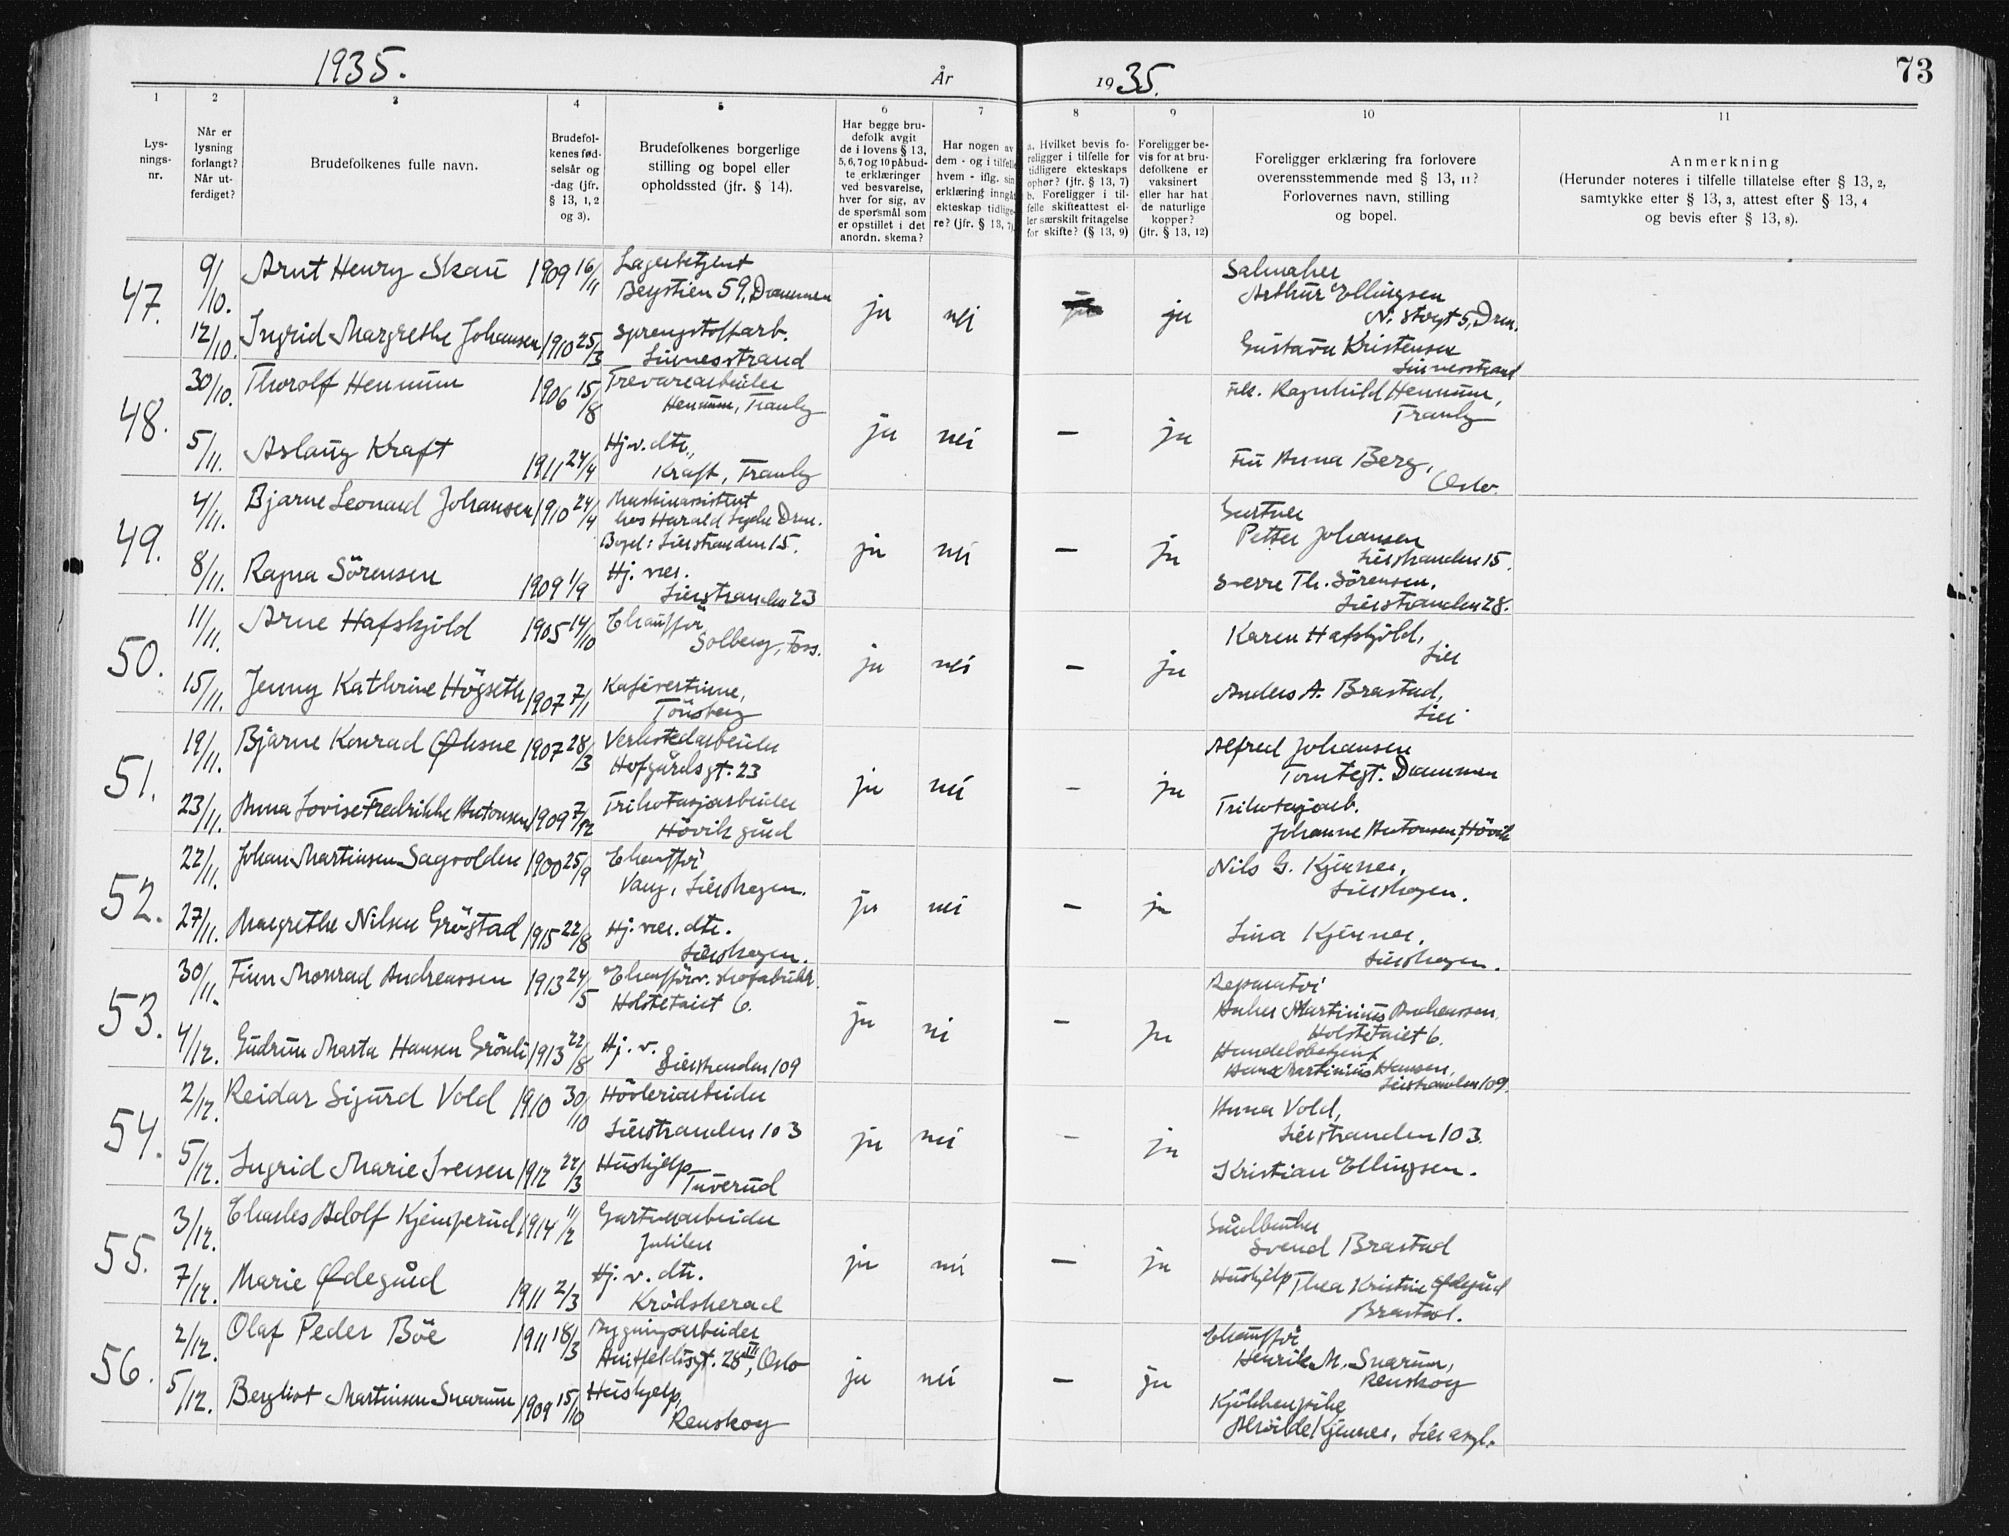 1935.
År
1935.
73
1
2
3
4
5
6
7
8
9
10
11
Lysnings-nr.
Når er lysning forlangt? Når utferdiget?
Brudefolkenes fulle navn.
Brudefolkenes fødselsår og -dag (jfr. § 13, 1, 2 og 3).
Brudefolkenes borgerlige stilling og bopel eller opholdssted (jfr. § 14).
Har begge brudefolk avgit de i lovens § 13, 5, 6, 7 og 10 påbudte erklæringer ved besvarelse, hver for sig, av de spørsmål som er opstillet i det anordn. skema?
Har nogen av dem - og i tilfelle hvem - iflg. sin erklæring inngått ekteskap tidligere? (jfr. § 13, 7).
a. Hvilket bevis foreligger i tilfelle for tidligere ekteskaps ophør? (jfr. § 13, 7) b. Foreligger i tilfelle skifteattest eller særskilt fritagelse for skifte? (§ 13, 9)
Foreligger bevis for at brudefolkene er vaksinert eller har hat de naturlige kopper? (jfr. § 13, 12)
Foreligger erklæring fra forlovere overensstemmende med § 13, 11? Forlovernes navn, stilling og bopel.
Anmerkning (Herunder noteres i tilfelle tillatelse efter § 13, 2, samtykke efter § 13, 3, attest efter § 13, 4 og bevis efter § 13, 8).
47.
9/10.
Arnt Henry Skau 1909 16/11
Lagerbetjent
59, Drammen
12/10.
Ingrid Margrethe Johansen 1910 25/3
sprengstoffarb.
Linnesstrand
ja nei ja
Salmaker
Arthur Ellingsen
N. Storgt 5, Drm.
Gustava Kristensen
Linnesstrand
48.
30/10.
Thorolf Hennum 1906 15/8
Trevarearbeider
Hennum, Tranby
5/11.
Aslaug Kraft 1911 24/4
Hj. v. dtr.,
Kraft, Tranby
ja nei — ja
Ragnhild Hennum,
Tranby
Anna Berg,
Oslo.
49.
4/11.
Bjarne Leonard Johansen 1910 24/4
Maskinassistent
hos Harald Lyche Drm.
Bopel: Lierstranden 15.
8/11.
Ragna Sörensen 1909 1/9
Hj. vær.
Lierstranden 23
ja nei — ja
Gartner
Petter Johansen
Lierstranden 15.
Sverre Th. Sörensen,
Lierstranden 28.
50.
11/11.
Arne Hafskjöld 1905 14/10
Chaufför
Solberg, Foss.
15/11.
Jenny Kathrine Högseth 1907 7/11
Kafévertinne,
Tönsberg
ja nei — ja
Karen Hafskjöld,
Lier
Anders A. Brastad,
Lier
51.
19/11.
Bjarne Konrad Øhsne 1907 28/3
Verkstedarbeider
Hofgårdsgt. 23
23/11.
Anna Lovise Fredrikke Antonsen 1909 7/12
Trikotasjarbeider
Hövik gård
ja nei - ja
Alfred Johansen
Tomtegt. Drammen
Trikotasjarb.
Johanne Antonsen, Hövik
52.
22/11.
Johan Martinsen Sagvolden 1900 25/9
Chaufför
Vang, Lierskogen.
27/11.
Margrethe Nilsen Gröstad 1915 22/8
Hj. vær. dtr.
Lierskogen.
ja nei — ja
Nils G. Kjenner,
Lierskogen.
Lina Kjenner,
Lierskogen.
53.
30/11.
Finn Monrad Andreassen 1913 24/5
Chaufför v. skofabrikk.
Holstetaiet 6.
4/12.
Gudrun Marta Hansen Grönli 1913 22/8
Hj. v.
Lierstranden 109
ja nei — ja
Reparatör
Martinius Andreassen.
Holstetaiet 6.
Handelsbetjent
Hans Martinius Hansen,
Lierstranden 109.
54.
2/12.
Reidar Sigurd Vold 1910 30/10
Hövleriarbeider
Lierstranden 103
5/12.
Ingrid Marie Iversen 1912 22/3
Hushjelp
Tuverud
ja nei - ja
Anna Vold,
Lierstranden 103.
Kristian Ellingsen.
55.
3/12.
Charles Adolf Kjemperud 1914 11/2
Gartnerarbeider
Julilen
7/12.
Marie Ødegård 1911 2/3
Hj. v. dtr.
Krödsherad
ja nei — ja
Småbruker
Svend Brastad
Hushjelp Thea Kristine Ødegård
Brastad.
56.
2/12.
Olaf Peder Böe 1911 18/3
Bygningsarbeider
Huitfeldtsgt. 28 III, Oslo
5/12.
Bergliot Martinsen Snarum 1909 15/10
Hushjelp,
Renskog
ja nei — ja
Chaufför
Henrik M. Snarum,
Renskog
Kjökkenpike
Alvilde Kjenner, Lier asyl.